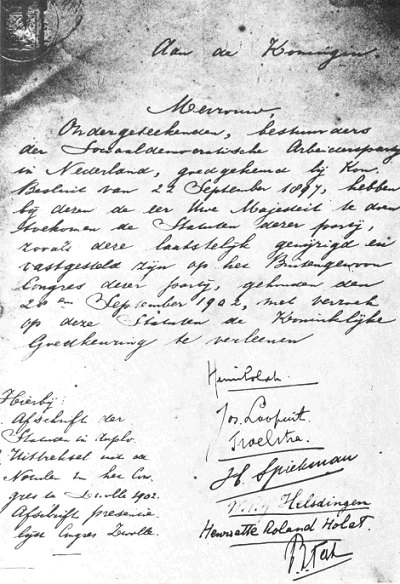 Aan de Koningin
Mevrouw,
Ondergeteekenden, bestuurders
der Sociaaldemocratische Arbeiderspartij
in Nederland, goedgekeurd bij Kon.
Besluit van 22 September 1897, hebben
bij dezen de eer Uwe Majesteit te doen
toekomen de Statuten dezer partij,
zooals deze laatstelijk gewijzigd en
vastgesteld zijn op het Buitengewoon
Congres dezer partij, gehouden den
September 1902, met verzoek
op deze Statuten de Koninklijke
Goedkeuring te verleenen
Hierbij:
Afschrift der
Statuten in duplo
Uittreksel uit de
Notulen v. het Con-
gres te Zwolle 1902.
Afschrift presentie
lijst Congres Zwolle.
Jos. Loopuit.
Troelstra.
H. Spiekman
Helsdingen
Henriette Roland Holst.